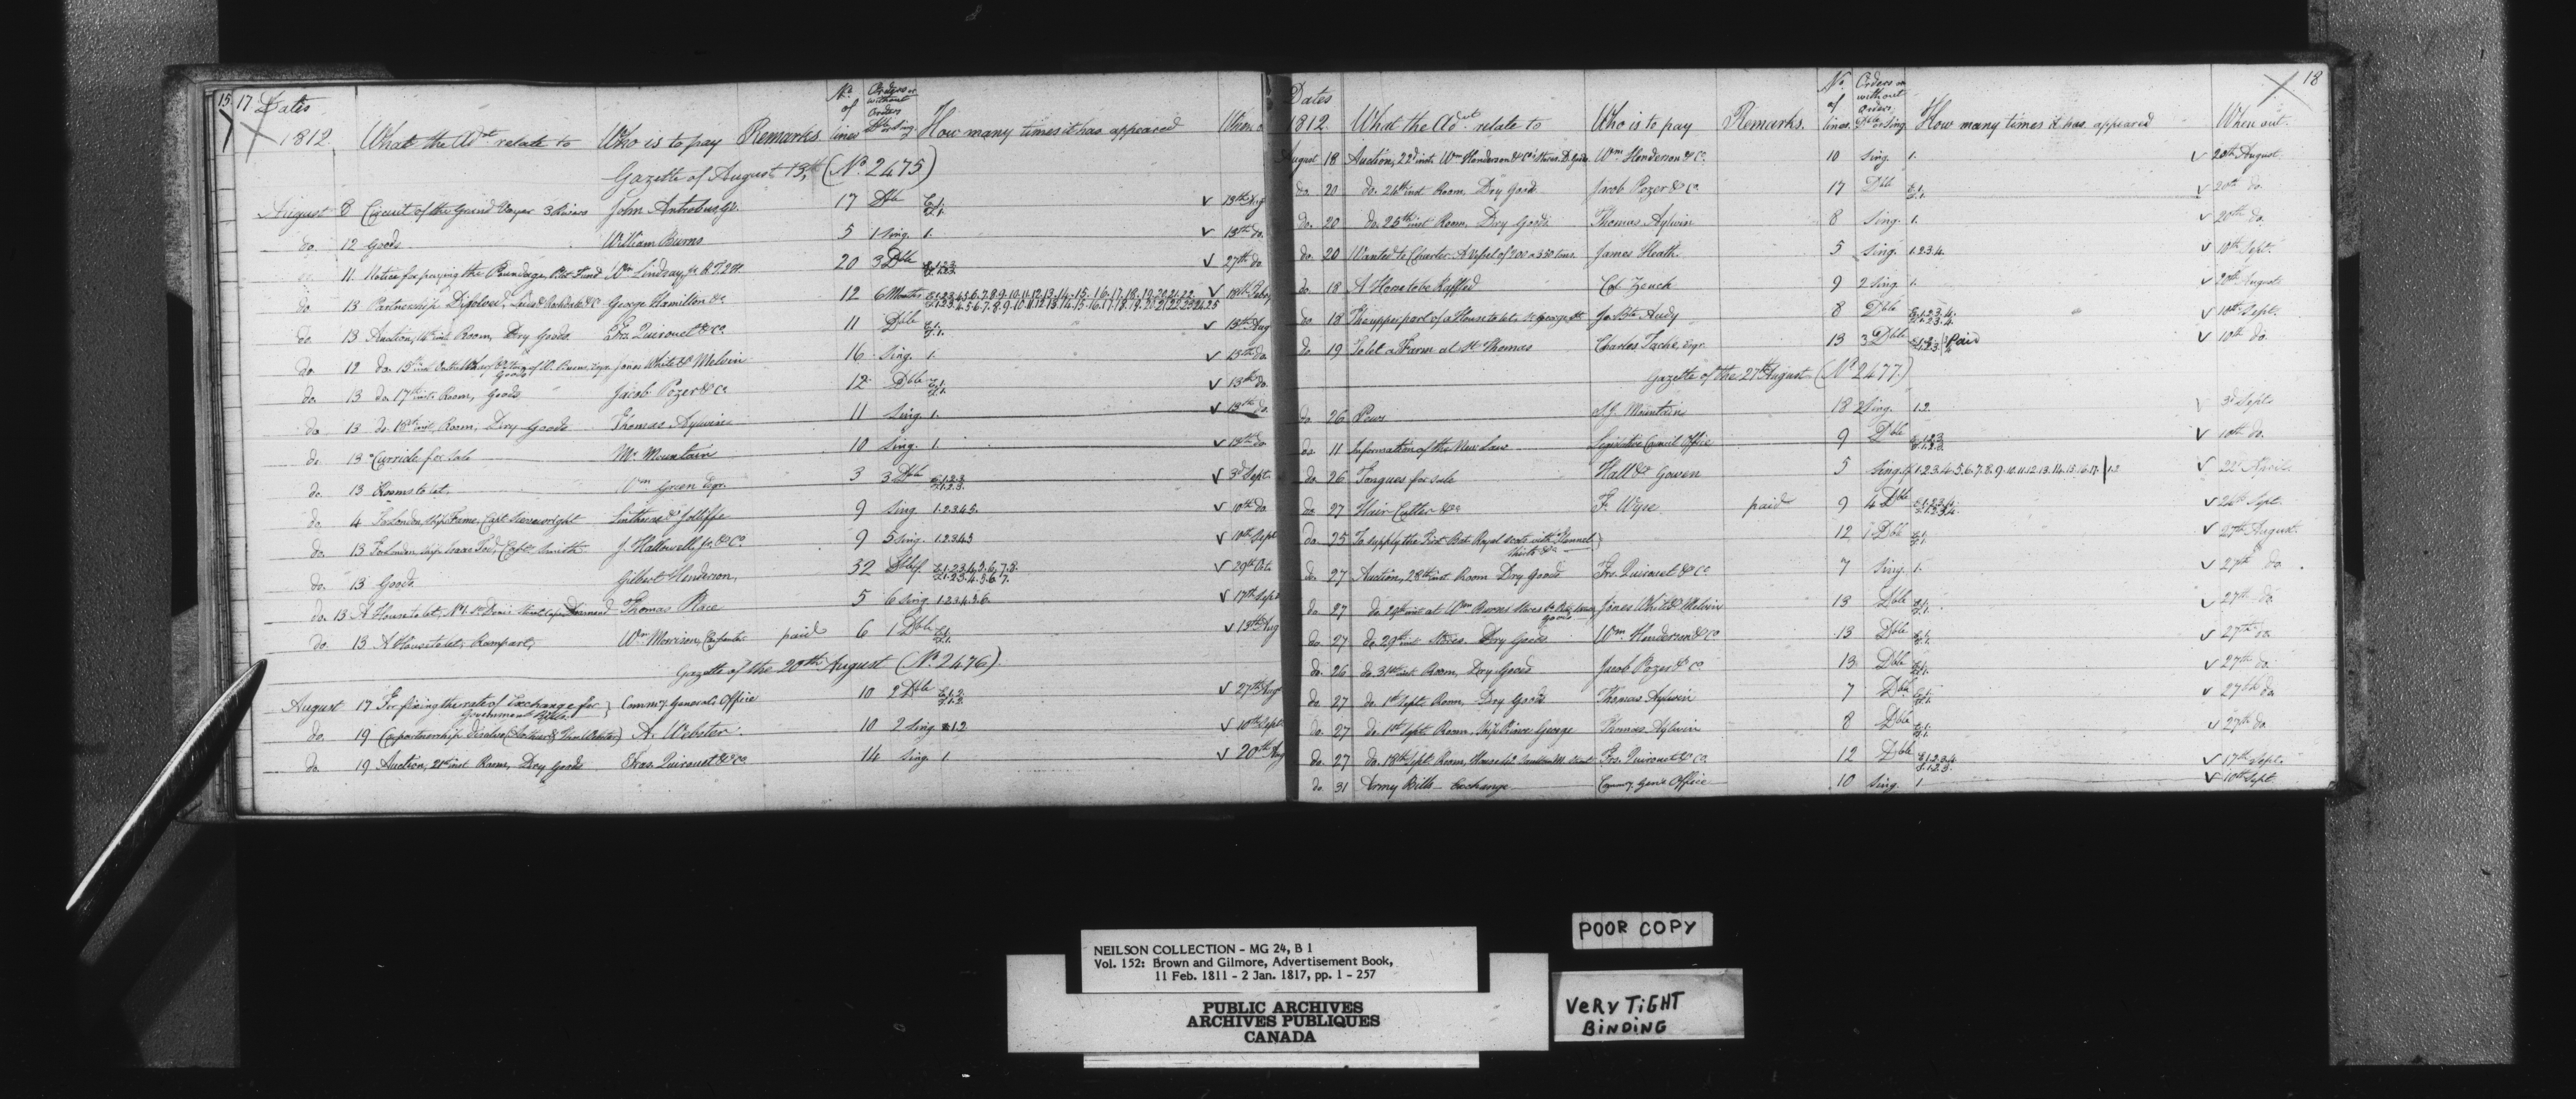 15 17 Dates
1812. What the Adt. relate to Who is to pay Remarks No. of lines Orders or without Orders Dble or sing How many times it has appeared When o
Gazette of August 13th (No. 2475)
August 8 Circuit of the Grand Voyer 3 Rivers John Antrobus, Esqr. 17 Dble E.1. F.1. V 13th Aug
do. 12 Goods William Burns 5 1 sing. 1. V 13th do.
11. Notice for paying the Wm. Lindsay, jr. 20 3 Dble E.1.2.3. F.1.2.3. V 27th do.
do. 13 Partnership Dissolved, George Hamilton &c 12 6 Months V 18th Feby
do. 13 Auction, 14th inst. Room, Dry Goods. Frs. Quirouet & Co. 11 Dble E.1. F.1. V 13th Aug
do. 12 do. 15th inst. Goods Jones White & Melvin 16 sing. 1. V 13th do.
do. 13 do. 17th inst. Room, Goods Jacob Pozer & Co 12 Dble E.1. F.1. V 13th do.
do. 13 do. 18th inst. Room, Dry Goods Thomas Aylwin 11 Sing. 1. V 13th do.
do. 13 Curricle for sale Mr. Mountain 10 sing. 1. V 13th do
do. 13 Rooms to let, Wm Green Esqr. 3 3 Dble E.1.2.3. F.1.2.3. V 3d Sept.
do. 4 For London, Ship Fame, Capt. 9 sing. 1.2.3.4.5. V 10th do
do. 13 For London Ship Isaac Tod, Capt. Smith J. Hallowell, jr. & Co. 9 5 sing. 1.2.3.4.5 V 10th Sept
do. 13 Goods Gilbert Henderson, 32 E.1.2.3.4.5.6.7.8. F.1.2.3.4.5.6.7. V 29th Oct.
do. 13 A House to let, No. 1. St. Thomas Place 5 6 sing. 1.2.3.4.5.6. V 17th Sept
do. 13 A House to let, Rampart, Wm. Morrison, Carpenter paid 6 1 Dble E.1. F.1. V 13th Aug
Gazette of the 20th August (No. 2476).
August 17 For fixing the rate of Exchange for Government Bills. } Commy. Generals Office 10 2 Dble E.1.2. F.1.2. V 27th Aug
do. 19 Copartnership Dissolve A. Webster. 10 2 sing 1.2 V 10th Sept.
do. 19 Auction, 21st inst. Room, Dry Goods Fras. Quirouet & Co 14 sing. 1 V 20th Aug
18
Dates
1812. What the Adt. relate to Who is to pay Remarks. No. of lines. Orders or without Orders. Dble or sing. How many times it has appeared When out.
August 18 Auction, 22d inst. Wm Henderson & Co's Stores. D. Goods. Wm. Henderson & C. 10 sing. 1. V 20th August.
do. 20 do. 24th inst. Room, Dry Goods Jacob Pozer & Co. 17 Dble E.1. F.1. V 20th do.
do. 20 do. 25th inst. Room, Dry Goods. Thomas Aylwin 8 sing. 1. V 20th do.
do. 20 Wanted to Charter A Vessel of 200 a 350 tons. James Heath. 5 sing. 1.2.3.4. V 10th Sept.
do. 18 A Horse to be Raffled Col. Zouch 9 2 sing. 1. V 20th August
do 18 The upper part of a House to let. St George St. Je. Bte. Audy 8 Dble E.1.2.3.4. F.1.2.3.4. V 10th Sept.
do 19 To let a Farm at St Thomas Charles Taché, Esqr. 13 3 Dble Paid V 10th do.
Gazette of the 27th August (No. 2477.)
do 26 Pews S. J. Mountain 18 2 Sing. 1.2. V 3d Sept.
do. 11 Information of the New Law Legislative Council Office 9 Dble E.1.2.3. F.1.2.3. V 10th do.
do. 26 Tongues for sale Hall & Gowen 5 Sing. 1.2.3.4.5.6.7.8.9.10.11.12.13.14.15.16.17. 1.2 V 22d April.
do. 27 Hair Cutter &c F. Wyse. paid 9 4 Dble E.1.2.3.4. F.1.2.3.4. V 24th Sept.
do. 25 To supply the First Bat. Royal Scots with Flannel Shirts &c } 12 1 Dble E.1. F.1. V 27th August.
do. 27 Auction, 28th inst. Room Dry Goods Frs. Quirouet & Co 7 sing. 1. V 27th do.
do. 27 do. 29th inst. at Wm Burns Stores Goods Jones White & Melvin 13 Dble E.1. F.1. V 27th do
do. 27 do. 29th inst. Stores. Dry Goods Wm. Henderson & Co 13 Dble E.1. F.1. V 27th do.
do. 26 do. 31st inst. Room, Dry Goods Jacob Pozer & Co 13 Dble E.1. F.1. V 27th do
do. 27 do. 1st Sept. Room, Dry Goods Thomas Aylwin 7 Dble E.1. F.1. V 27th do.
do. 27 do. 1st Sept. Room, Ship Prince George Thomas Aylwin 8 Dble E.1. F.1. V 27th do
do. 27 do. 18th Sept. Room, House Frs. Quirouet & Co. 12 Dble E.1.2.3.4. F.1.2.3. V 17th Sept.
do. 31 Army Bills Exchange Commy. Genls Office 10 sing. 1 V 10th Sept.
POOR COPY
NEILSON COLLECTION - MG 24, B 1
Vol. 152: Brown and Gilmore, Advertisement Book,
11 Feb. 1811 - 2 Jan. 1817, pp. 1 - 257
PUBLIC ARCHIVES
ARCHIVES PUBLIQUES
CANADA
VERY TIGHT
BINDING